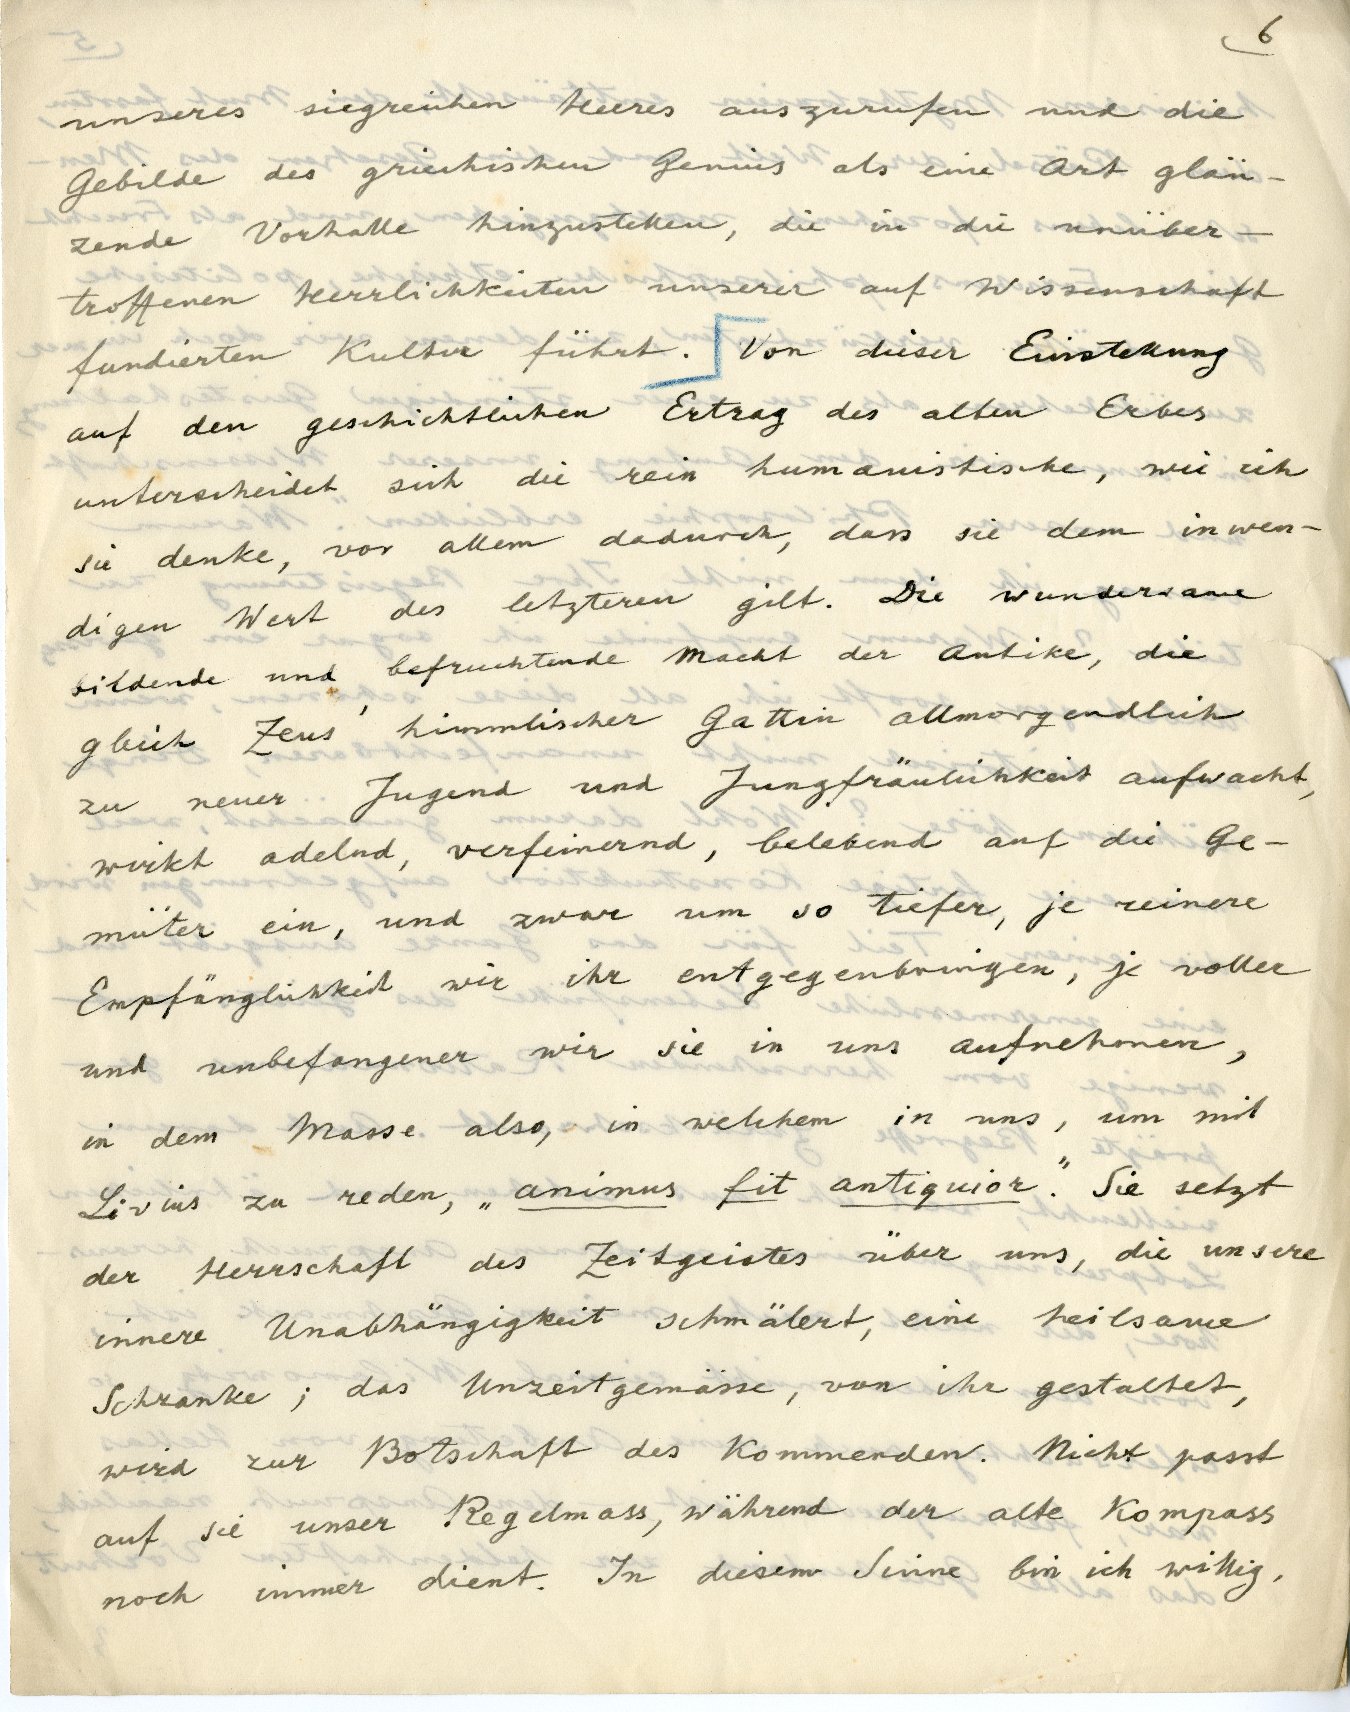 6
unseres siegreichen Heeres auszurufen und die
Gebilde des griechischen Genius als eine Art glän-
zende Vorhalle hinzustellen, die in die unüber-
troffenen Herrlichkeiten unserer auf Wissenschaft
fundierten Kultur führt. Von dieser Einstellung
auf den geschichtlichen Ertrag des alten Erbes
unterscheidet sich die rein humanistische, wie ich
sie denke, vor allem dadurch, dass sie dem inwen-
digen Wert des letzteren gilt. Die wundersame
bildende und befruchtende Macht der Antike, die
gleich Zeus' himmlischer Gattin allmorgendlich
zu neuer Jugend und Jungfräulichkeit aufwacht,
wirkt adelnd, verfeinernd, belebend auf die Ge-
müter ein, und zwar um so tiefer, je reinere
Empfänglichkeit wir ihr entgegenbringen, je voller
und unbefangener wir sie in uns aufnehmen,
in dem Masse also, in welchem in uns, um mit
Livius zu reden, „animus fit antiquior". Sie setzt
der Herrschaft des Zeitgeistes über uns, die unsere
innere Unabhängigkeit schmälert, eine heilsame
Schranke; das Unzeitgemässe, von ihr gestaltet,
wird zur Botschaft des Kommenden. Nicht passt
auf sie unser Regelmass, während der alte Kompass
noch immer dient. In diesem Sinne bin ich willig,